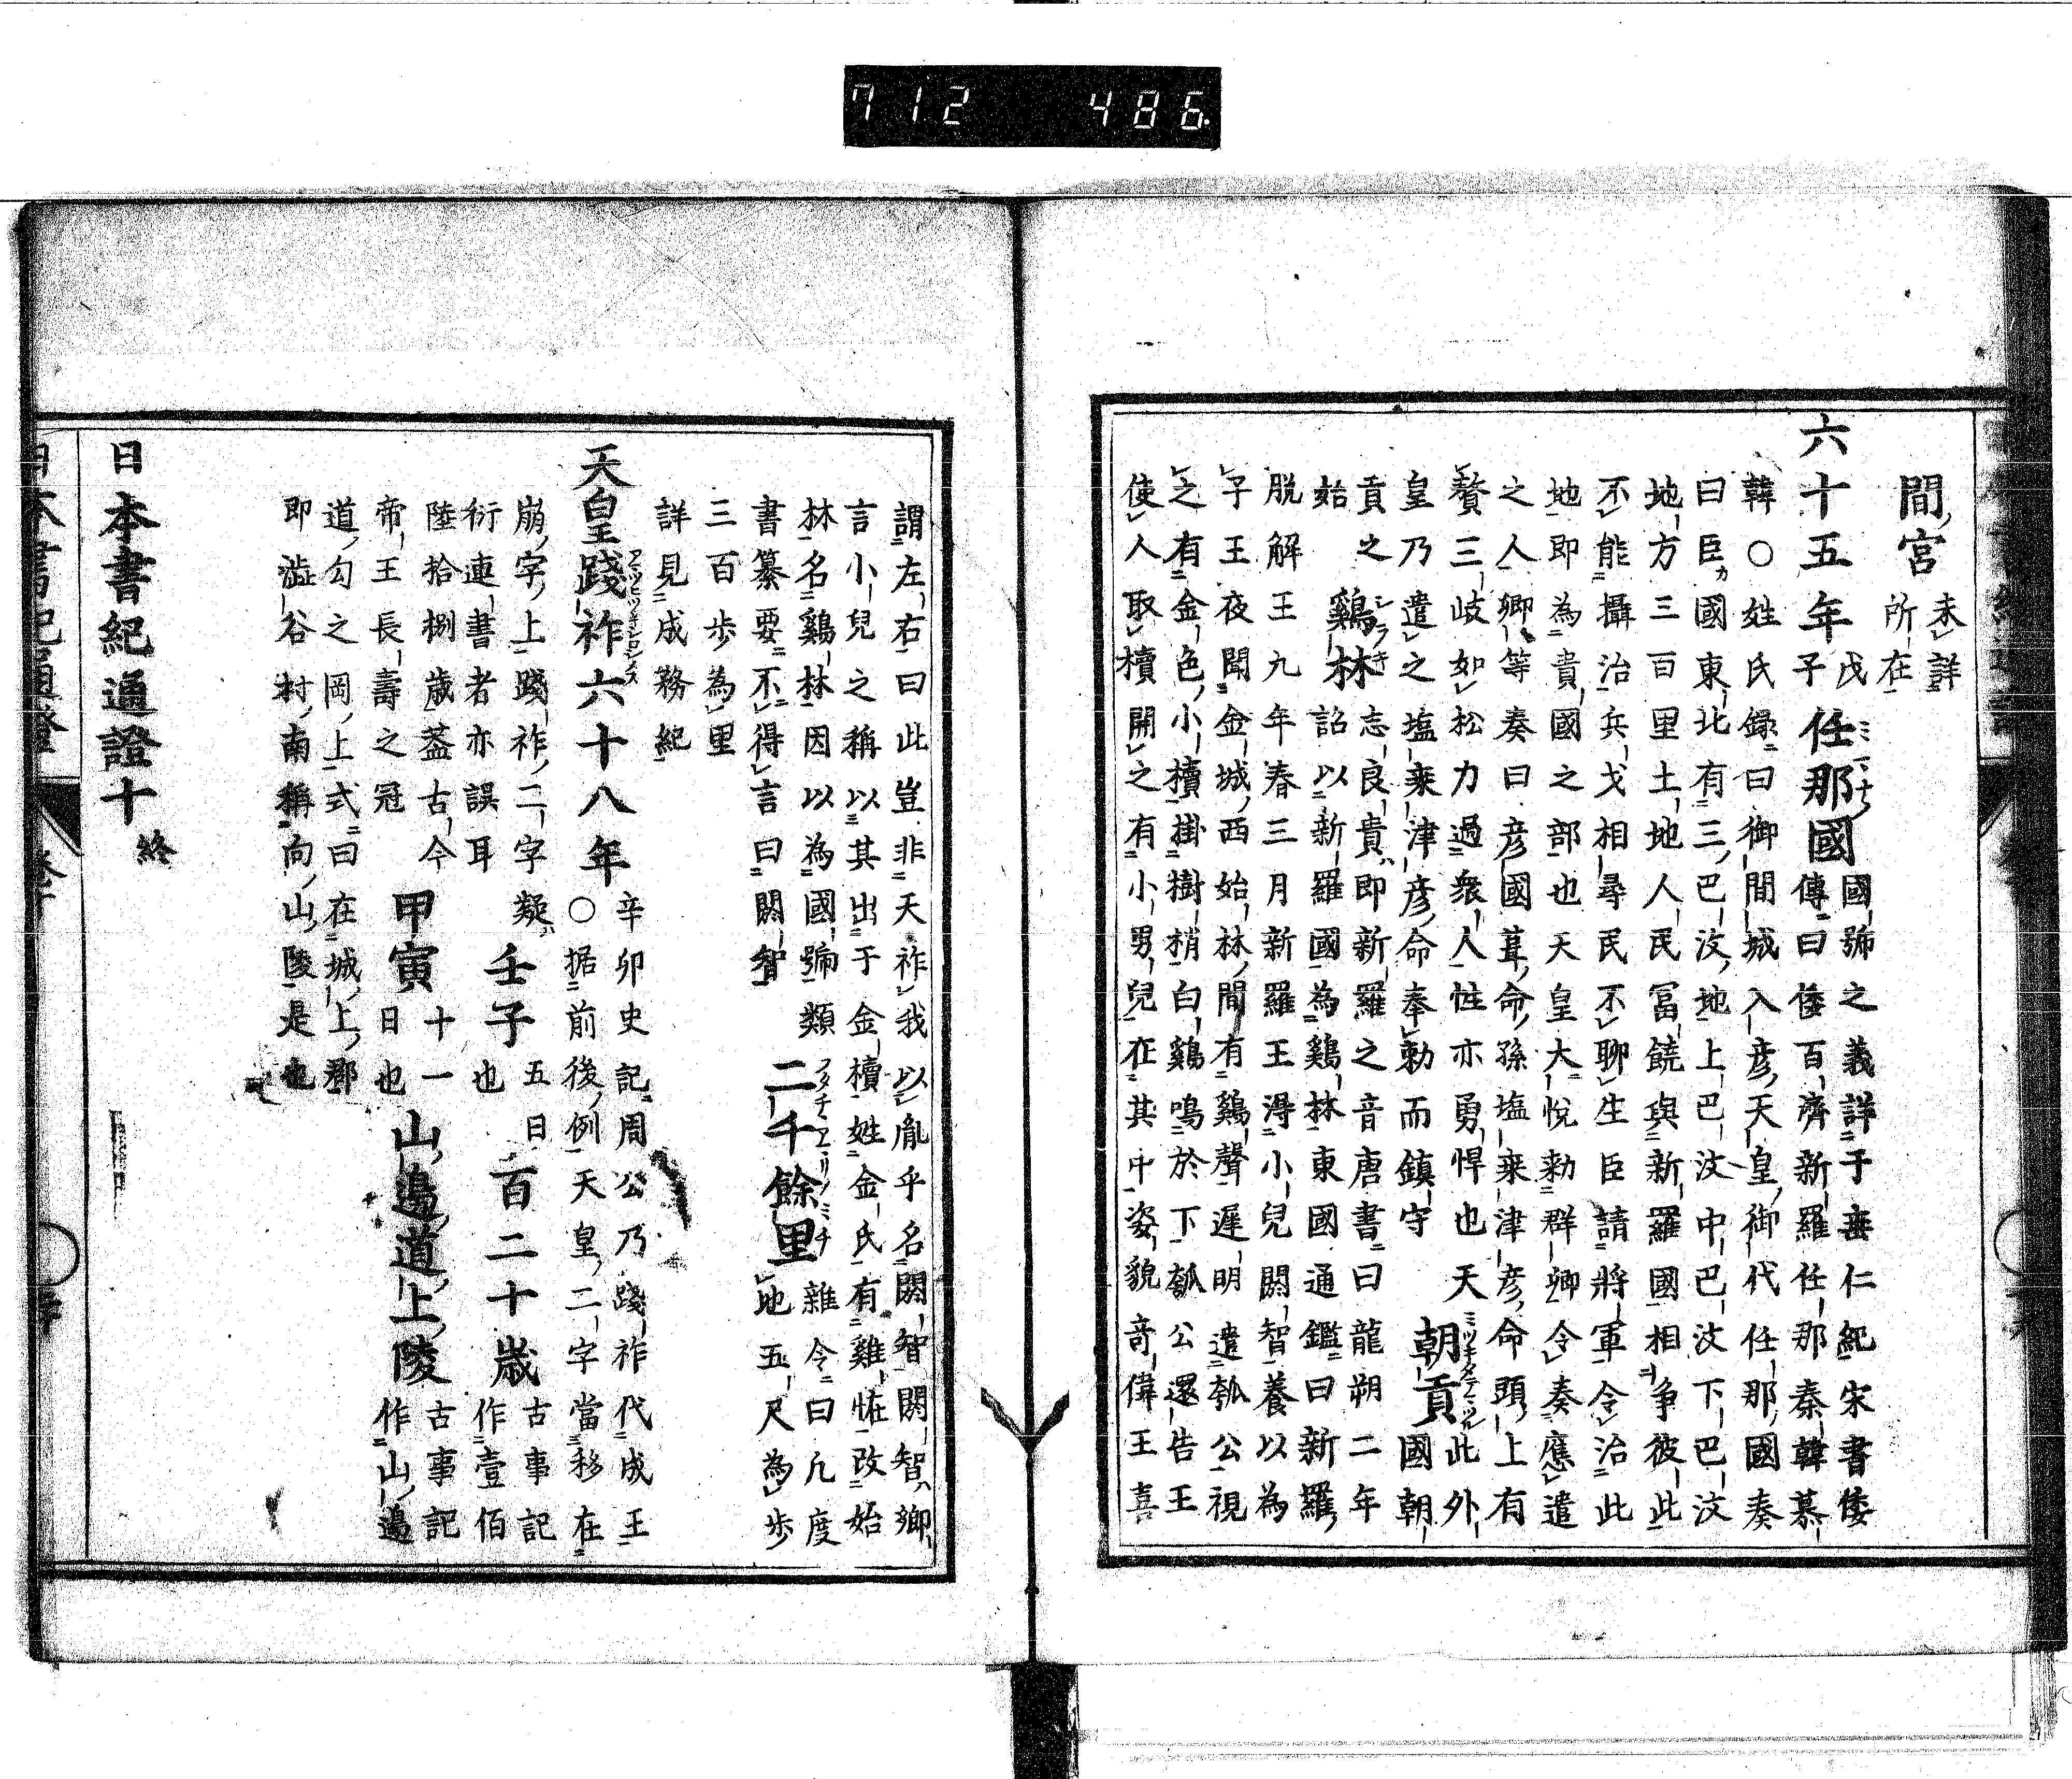 712 486
間宮 未詳所在
六十五年 戊子 任那國 國號之義詳于垂仁紀宋書倭
傳曰倭百濟新羅任那秦韓慕
韓○姓氏錄曰御間城入彥天皇御代任那國奏
曰臣國東北有三巴汶地上巴汶中巴汶下巴汶
地方三百里土地人民冨饒與新羅國相爭彼此
不能攝治兵戈相尋民不聊生臣請將軍令治此
地即為貴國之部也天皇大悅勅群卿令奏應遣
之人卿等奏曰彥國葺命孫塩乗津彥命頭上有
贅三岐如松力過衆人性亦勇悍也天
皇乃遣之塩乗津彥命奉勅而鎮守 朝貢 此外國朝
貢之始 鷄林 志良貴即新羅之音唐書曰龍朔二年
詔以新羅國為鷄林東國通鑑曰新羅
脫解王九年春三月新羅王淂小兒閼智養以為
子王夜聞金城西始林間有鷄聲遲明遣瓠公視
之有金色小櫝掛樹梢白鷄鳴於下瓠公還告王
使人取櫝開之有小男兒在其中姿貌竒偉王喜
謂左右曰此豈非天祚我以胤乎名閼智閼智鄉
言小兒之稱以其出于金櫝姓金氏有雞恠改始
林名鷄林因以為國號類
書纂要不得言曰閼智 二千餘里 雜令曰凡度地五尺為步
三百步為里
詳見成務紀
天皇踐祚六十八年 辛卯史記周公乃踐祚代成王
○据前後例天皇二字當移在
崩字上踐祚二字疑
衍連書者亦誤耳 壬子 五日也 百二十歲 古事記作壹佰
陸拾捌歲蓋古今
帝王長壽之冠 甲寅 十一日也 山邉道上陵 古事記作山邉
道勾之岡上式曰在城上郡
即澁谷村南稱向山陵是也
日本書紀通證十 終